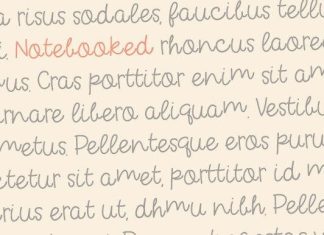 a risus sodales, faucibus tellu
i. Notebooked rhoncus laoree
us. Cras porttitor enim sit am
rnare libero aliquam. Vestibu
metus. Pellentesque eros puru
tetur sit amet, porttitor id m
rius erat ut, dhmu nibh. Pelle